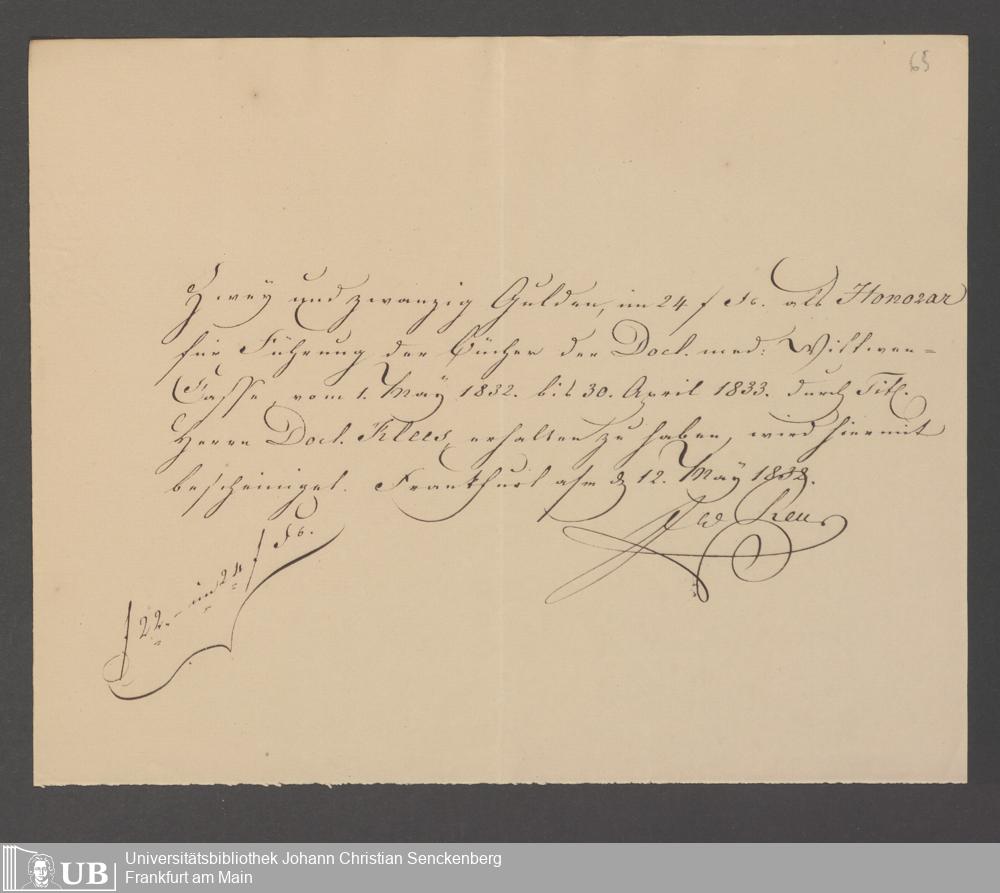 65
Zwey und zwanzig Gulden, im 24 f Fs. als Honorar
für Führung der Bücher der Doct. med: Wittwen-
Casse, vom 1. May 1832. bis 30. April 1833. durch Titl.
Herrn Doct. Kloss, erhalten zu haben, wird hiermit
bescheinigt. Frankfurt a/m d 12. May 1833.
f 22.- im 24 f Fs.
UB
Universitätsbibliothek Johann Christian Senckenberg
Frankfurt am Main